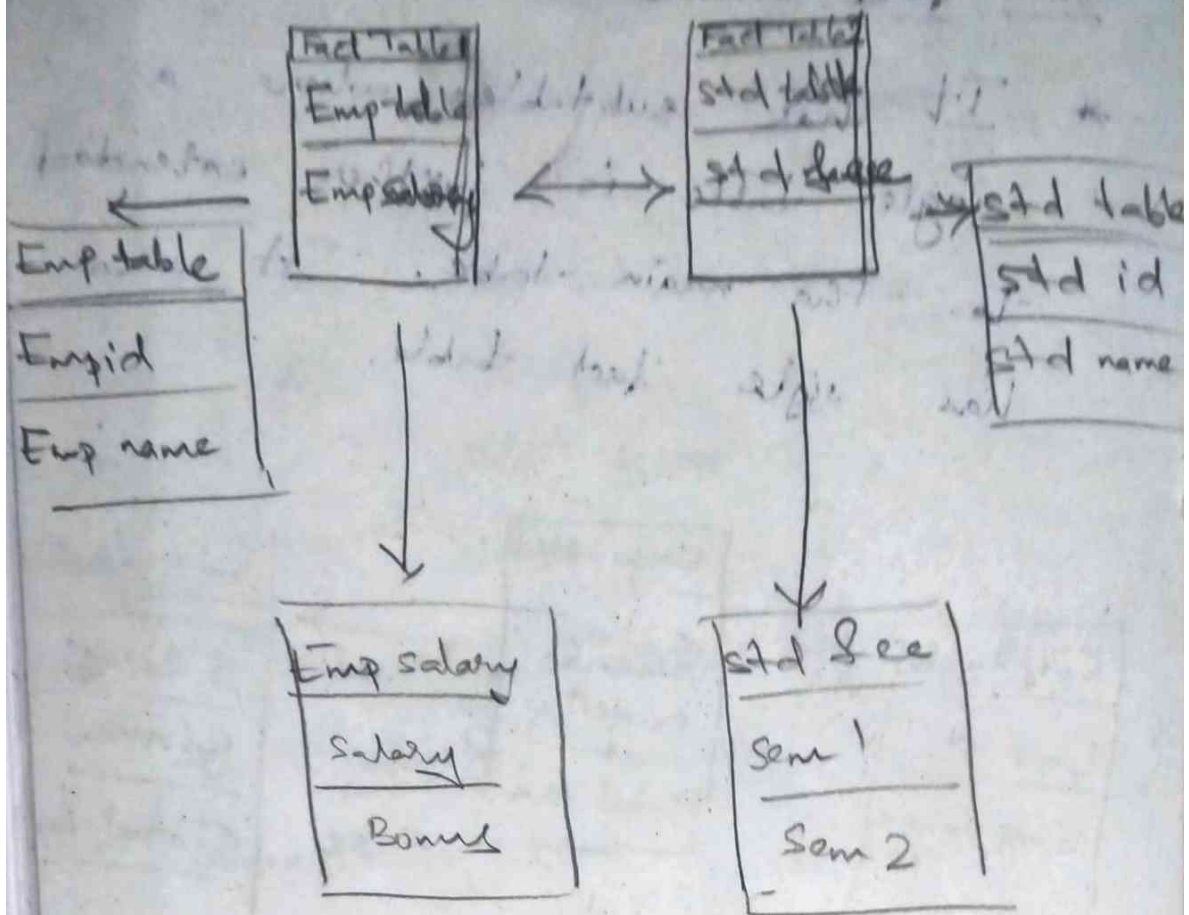 Fact Table
Emp table
Emp salary
Fact Table
std table
std fee
Emp table
Empid
Emp name
std table
std id
std name
Emp salary
Salary
Bonus
std fee
Sem 1
Sem 2